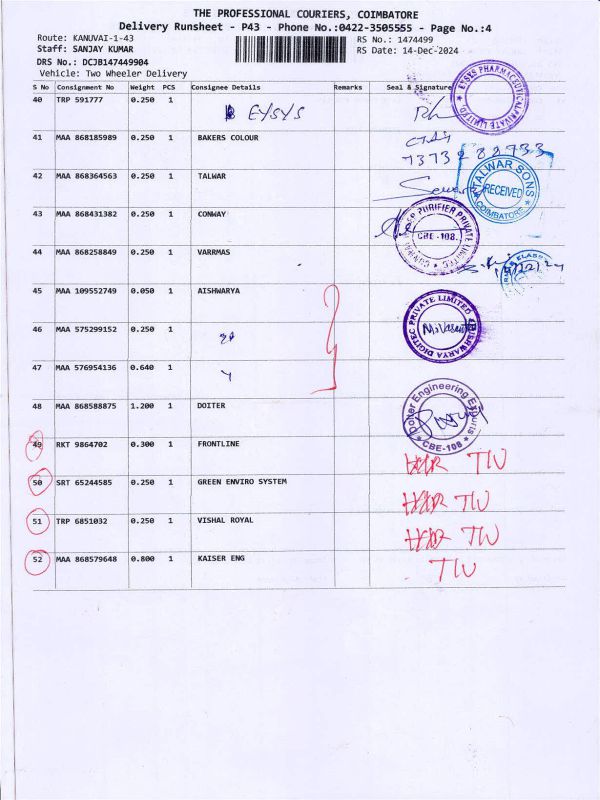 THE PROFESSIONAL COURIERS, COIMBATORE
Delivery Runsheet - P43 - Phone No.:0422-3505555 - Page No.:4
Route: KANUVAI-1-43 RS No.: 1474499
Staff: SANJAY KUMAR RS Date: 14-Dec-2024
DRS No.: DCJB147449904
Vehicle: Two Wheeler Delivery
S No Consignment No Weight PCS Consignee Details Remarks Seal & Signature
40 TRP 591777 0.250 1 EYSYS
EYSYS PHARMACEUTICAL PRIVATE LIMITED
41 MAA 868185989 0.250 1 BAKERS COLOUR
42 MAA 868364563 0.250 1 TALWAR
TALWAR SONS RECEIVED COIMBATORE
43 MAA 868431382 0.250 1 CONWAY
PURIFIER PRIVATE LIMITED CBE -108.
44 MAA 868258849 0.250 1 VARRMAS
45 MAA 109552749 0.050 1 AISHWARYA
AISHWARYA DIGITEC PRIVATE LIMITED
46 MAA 575299152 0.250 1
47 MAA 576954136 0.640 1
48 MAA 868588875 1.200 1 DOITER
Doiter Engineering CBE-108
49 RKT 9864702 0.300 1 FRONTLINE TIU
50 SRT 65244585 0.250 1 GREEN ENVIRO SYSTEM TIU
51 TRP 6851032 0.250 1 VISHAL ROYAL TIU
52 MAA 868579648 0.800 1 KAISER ENG TIU